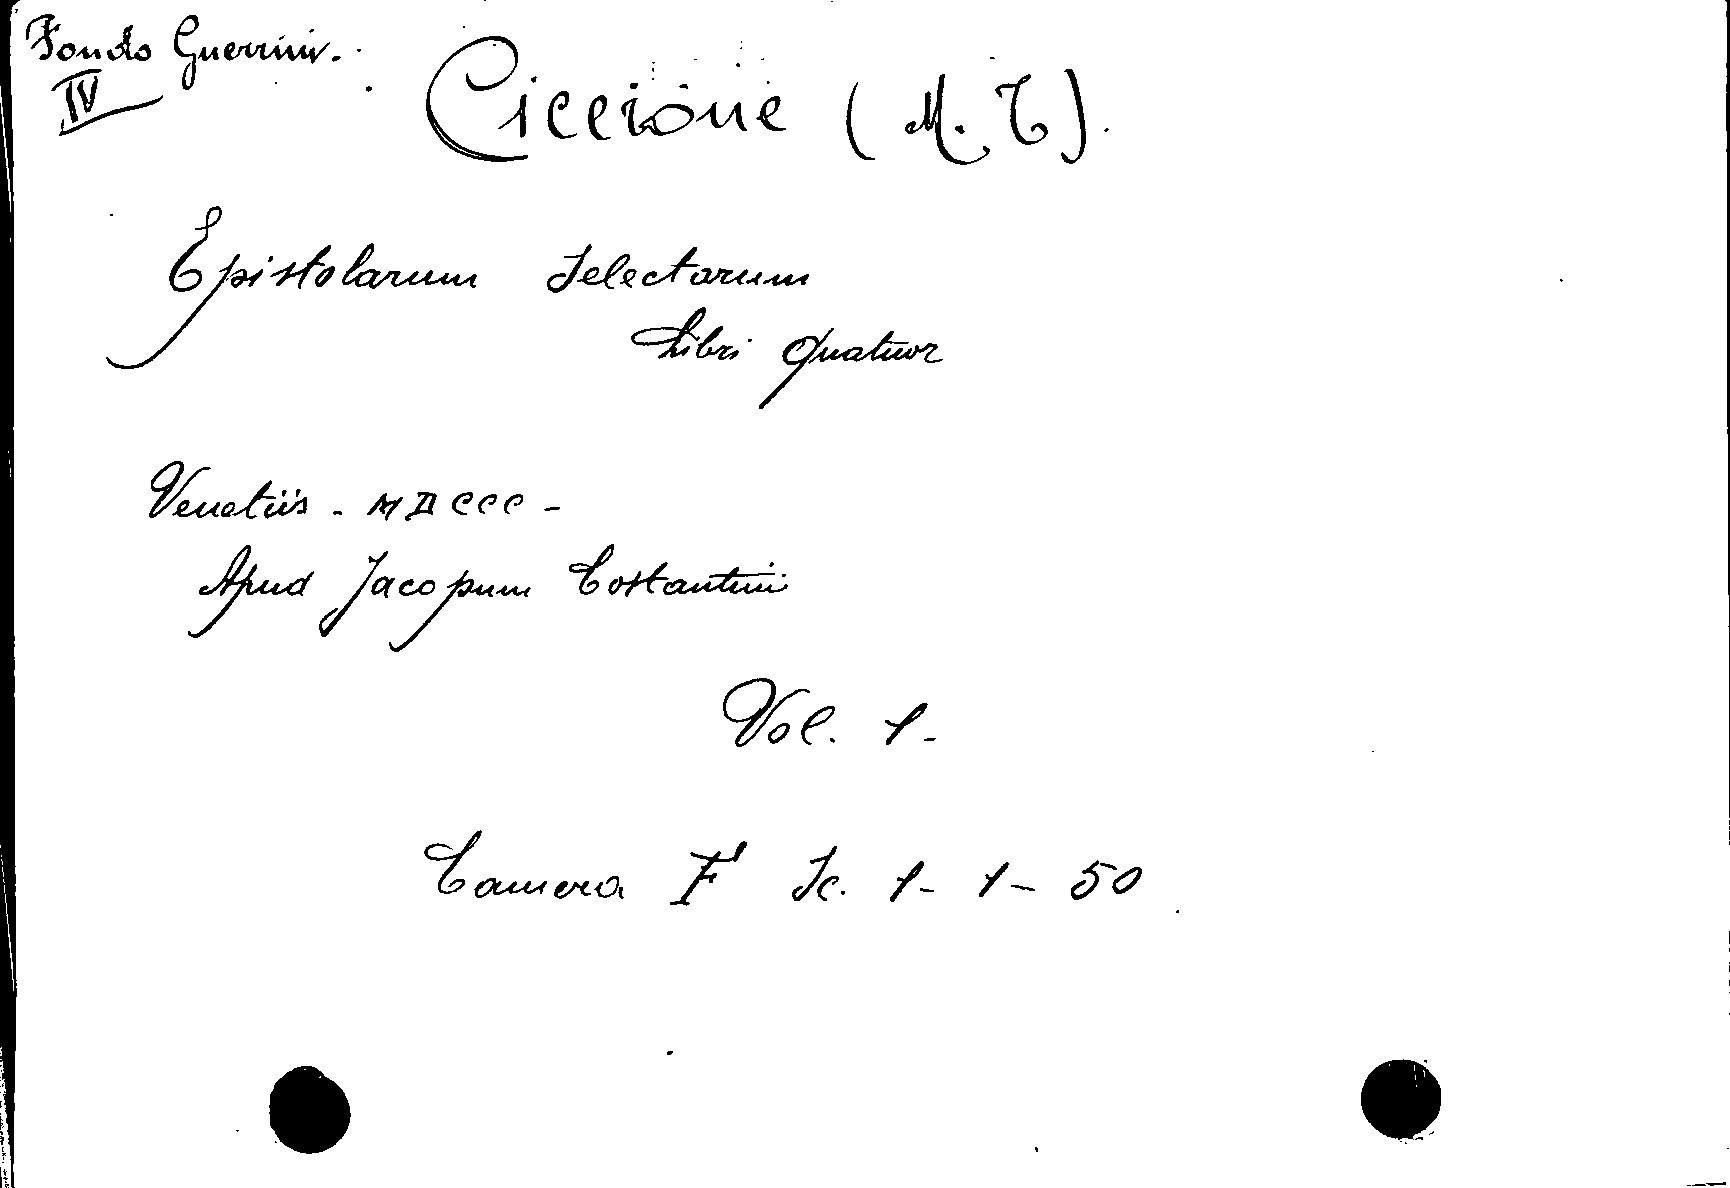 Fondo Guerrini.
IV
Ciccione (M. T).
Epistolarum Selectarum
Libri Quatuor
Venetiis - MDCCC -
Apud Jacopum Costantini
Vol. 1-
Camera F Sc. 1- 1- 50